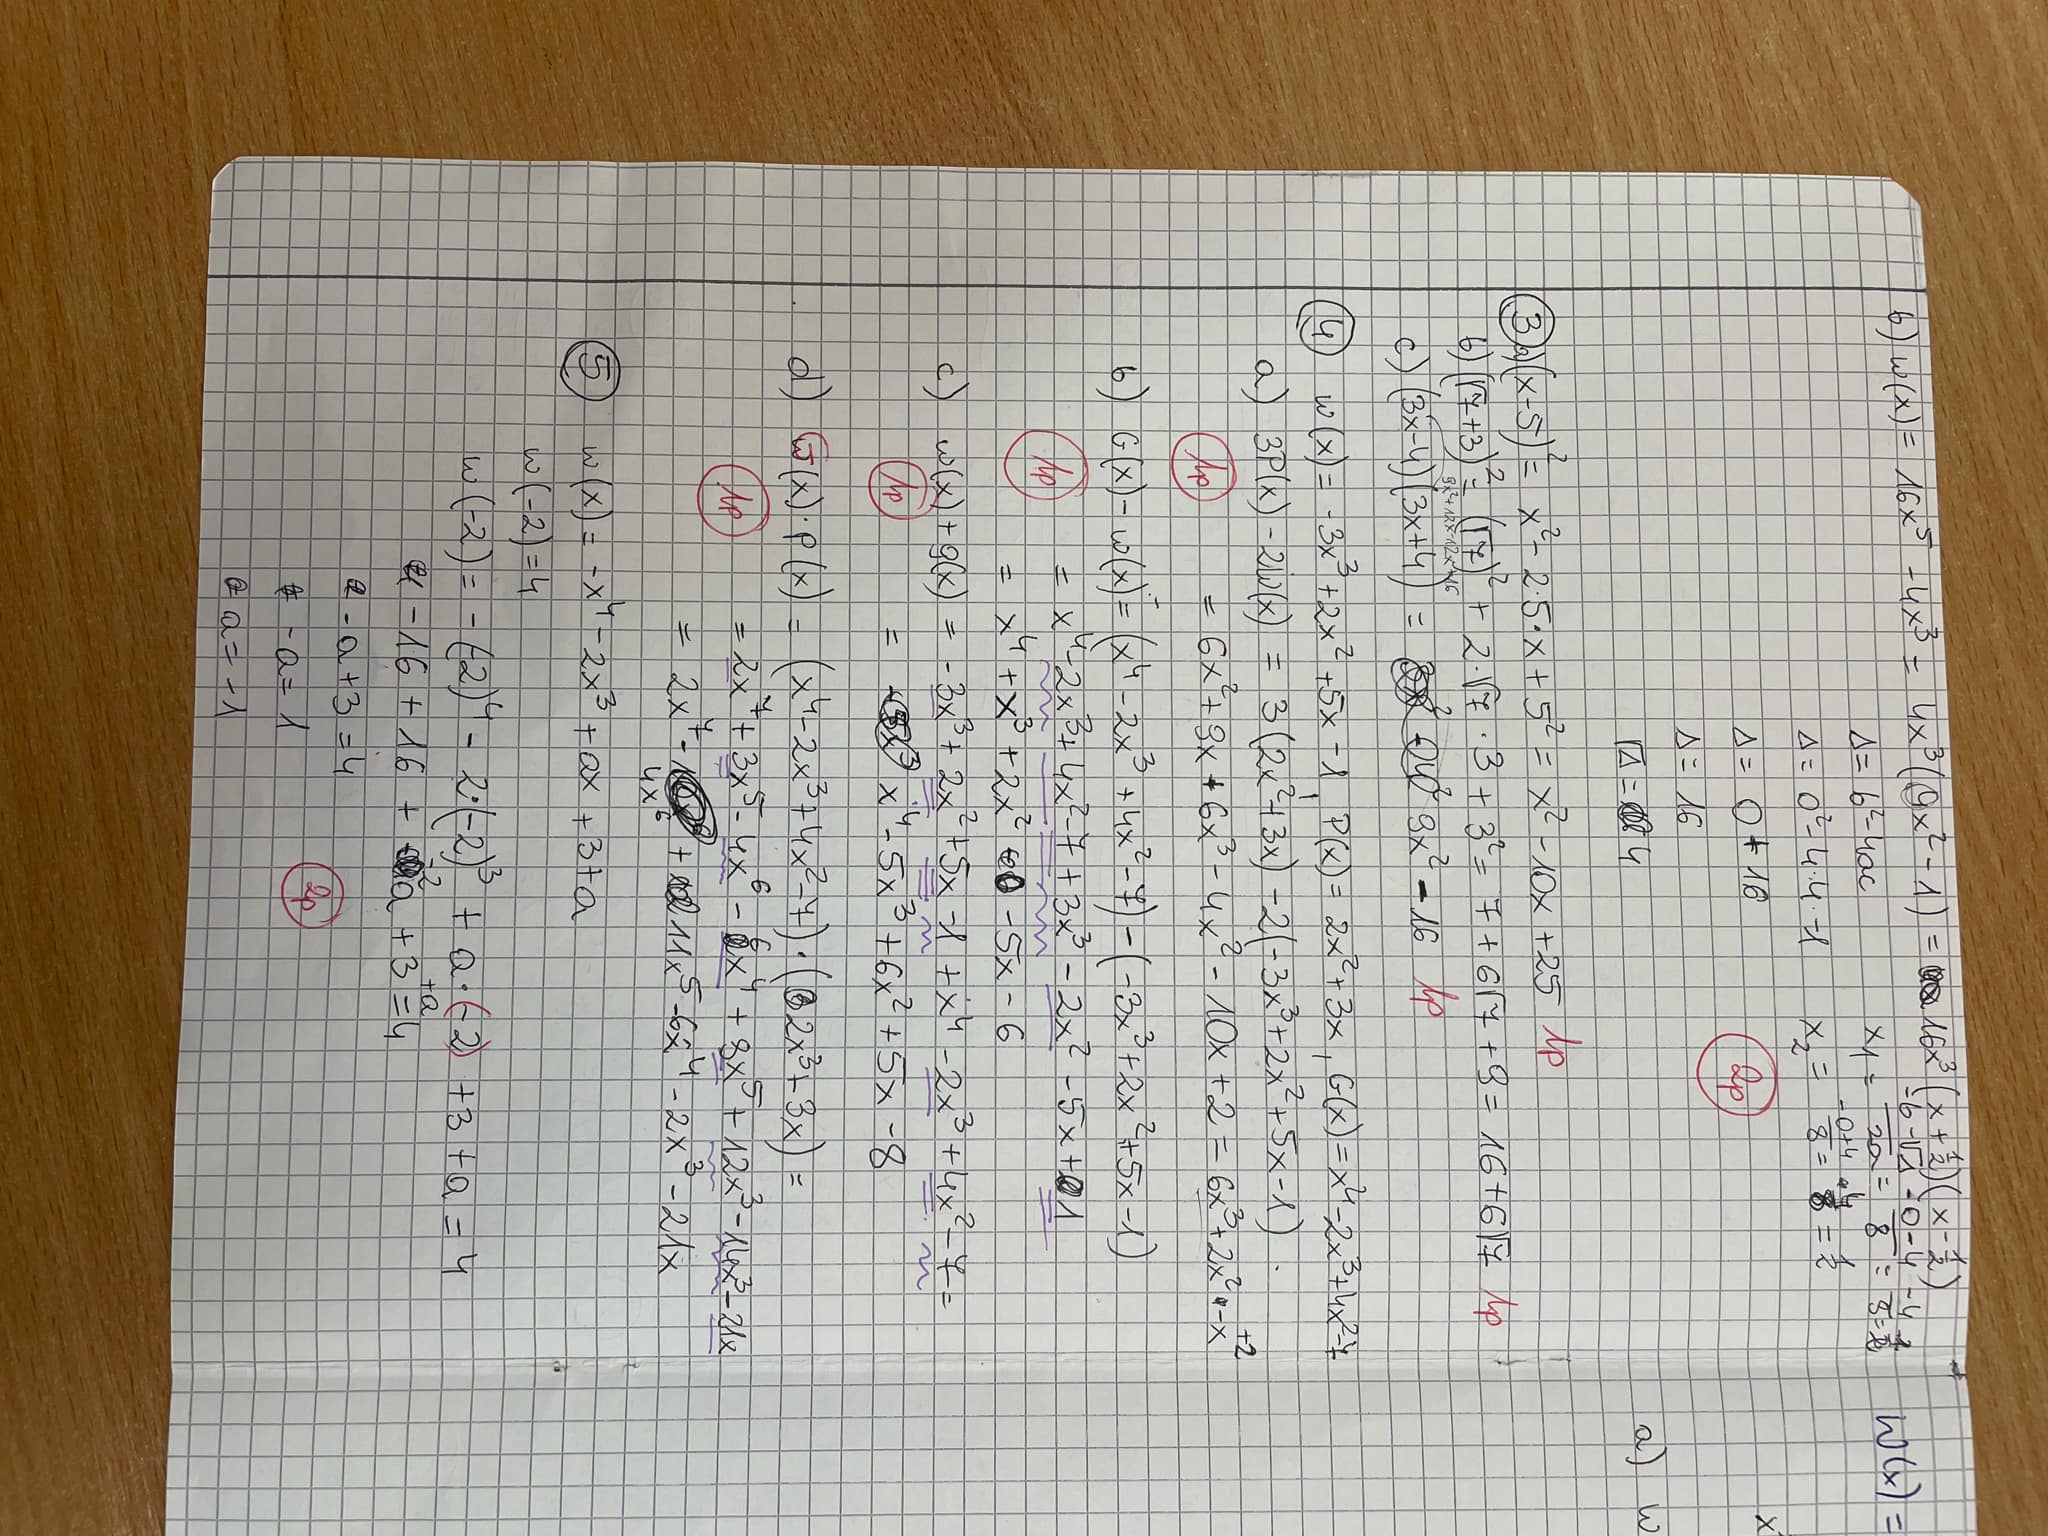 b) w(x) = 16x⁵ - 4x³ = 4x³(4x² - 1) = 16x³(x + ½)(x - ½)
Δ = b² - 4ac
x₁ = (-b - √Δ)/2a = (-0 - 4)/8 = -4/8 = -½
Δ = 0² - 4·4·-1
x₂ = (-0 + 4)/8 = 4/8 = ½
Δ = 0 + 16
Δ = 16
√Δ = 4
2p
③ a) (x - 5)² = x² - 2·5·x + 5² = x² - 10x + 25 1p
b) (√7 + 3)² = (√7)² + 2·√7·3 + 3² = 7 + 6√7 + 9 = 16 + 6√7 1p
9x² + 12x - 12x - 16
c) (3x - 4)(3x + 4) = 9x² - 16 1p
④ w(x) = -3x³ + 2x² + 5x - 1, P(x) = 2x² + 3x, G(x) = x⁴ - 2x³ + 4x² - 7
a) 3P(x) - 2W(x) = 3(2x² + 3x) - 2(-3x³ + 2x² + 5x - 1)
= 6x² + 9x + 6x³ - 4x² - 10x + 2 = 6x³ + 2x² - x + 2
1p
b) G(x) - w(x) = (x⁴ - 2x³ + 4x² - 7) - (-3x³ + 2x² + 5x - 1)
= x⁴ - 2x³ + 4x² - 7 + 3x³ - 2x² - 5x + 1
1p
= x⁴ + x³ + 2x² - 5x - 6
c) w(x) + g(x) = -3x³ + 2x² + 5x - 1 + x⁴ - 2x³ + 4x² - 7 =
1p
= x⁴ - 5x³ + 6x² + 5x - 8
d) w(x) · p(x) = (x⁴ - 2x³ + 4x² - 7) · (2x³ + 3x) =
1p
= 2x⁷ + 3x⁵ - 4x⁶ - 6x⁴ + 8x⁵ + 12x³ - 14x³ - 21x
= 2x⁷ - 4x⁶ + 11x⁵ - 6x⁴ - 2x³ - 21x
⑤ w(x) = -x⁴ - 2x³ + ax + 3 + a
w(-2) = 4
w(-2) = -(-2)⁴ - 2·(-2)³ + a·(-2) + 3 + a = 4
-16 + 16 + -2a + 3 +a = 4
-a + 3 = 4
-a = 1
a = -1
2p
W(x) =
x
a) w